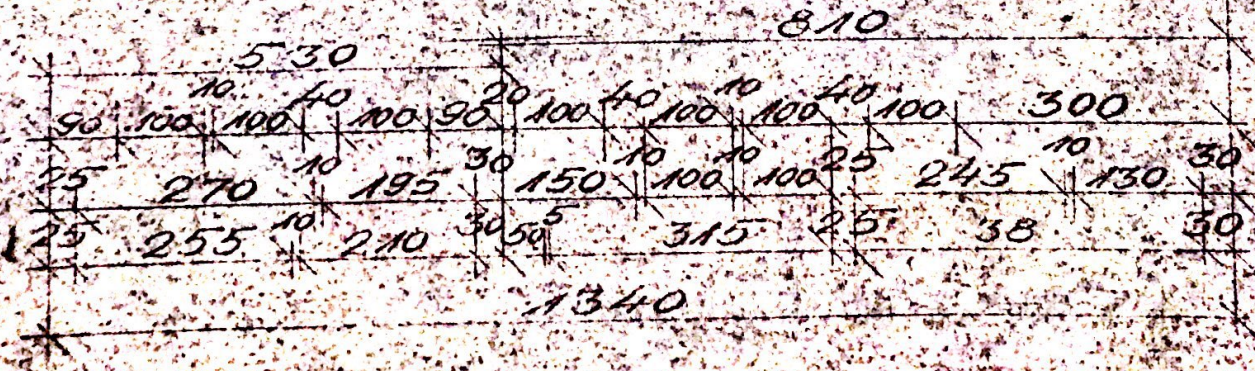 810
530
10 40 20 40 10 40
90 100 100 100 90 100 100 100 100 300
25 270 10 195 30 150 10 100 10 100 25 245 10 130 30
25 255 10 210 30 50 5 315 25 38 30
1340